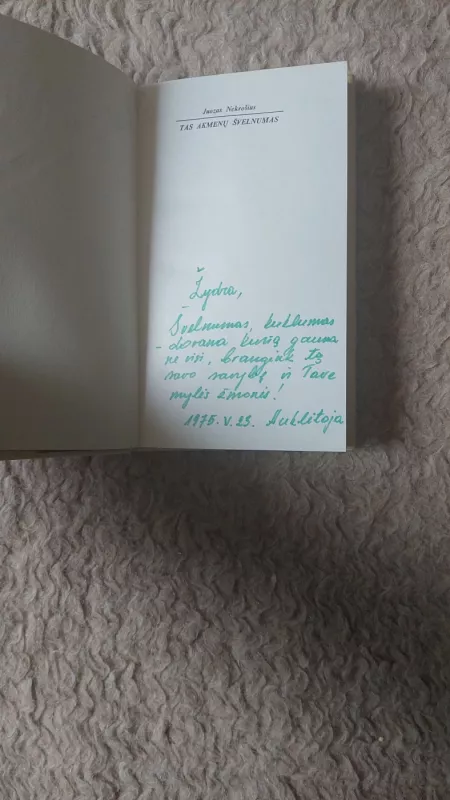 Juozas Nekrošius
TAS AKMENŲ ŠVELNUMAS
Žydra,
Švelnumas, kuklumas
- dovana kurią gauna
ne visi, brangink tą
savo savybę ir Tave
mylės žmonės!
1975.V.25. Auklėtoja